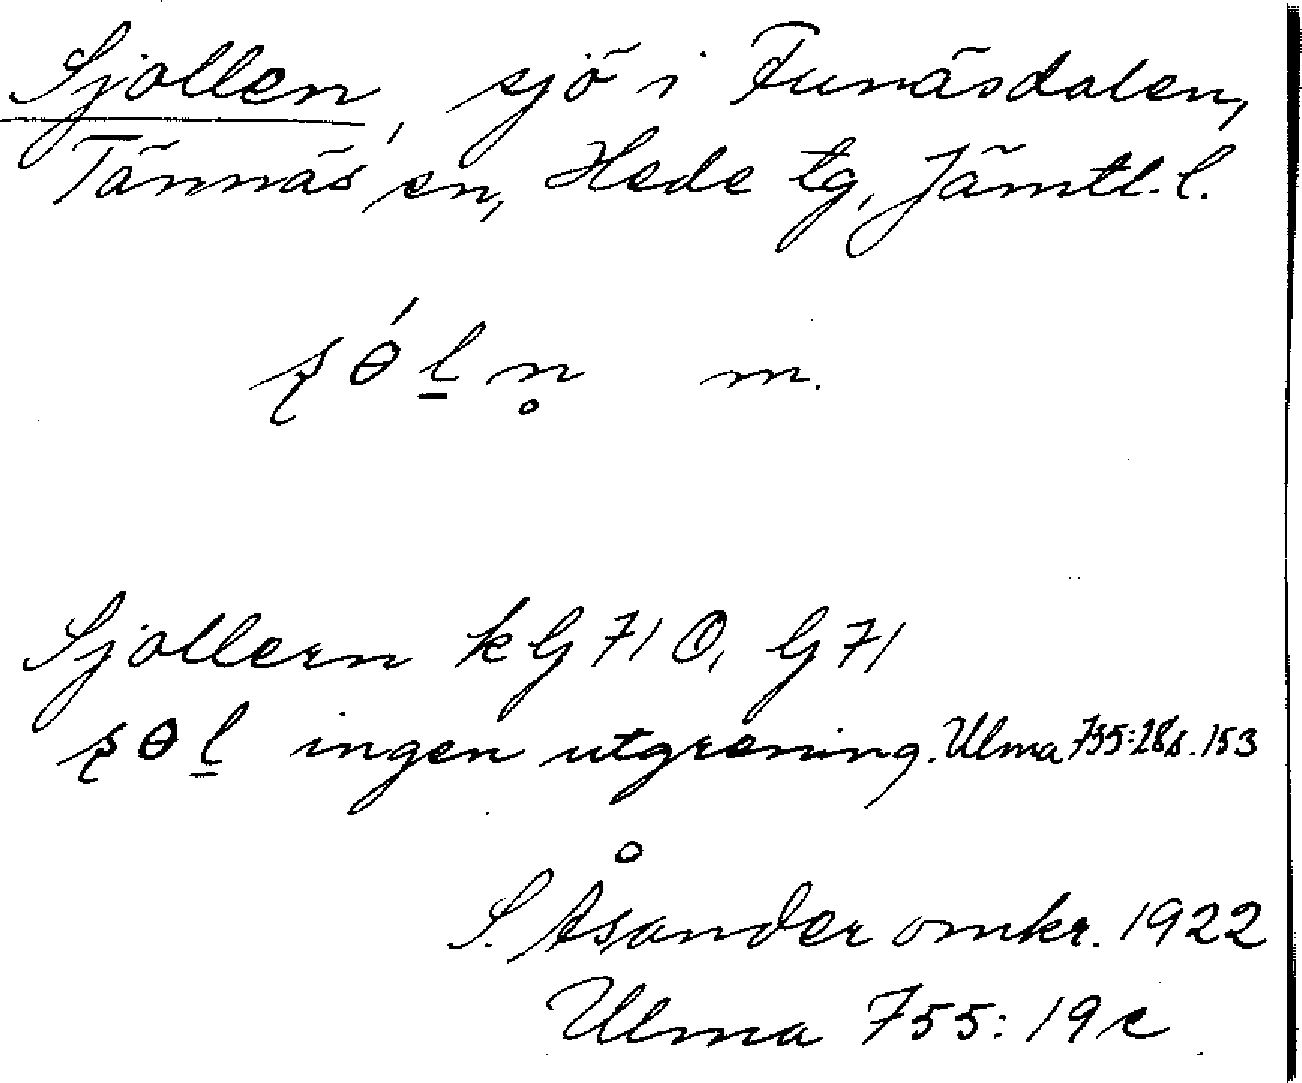 Sjollen, sjö i Funäsdalen,
Tännäs sn, Hede tg, Jämtl. l.
m.
Sjollern k Gj 71 Ö, Gj 71
ingen utgrening. Ulma 755:28 s. 153
S. Åsander omkr. 1922
Ulma 755:19 c